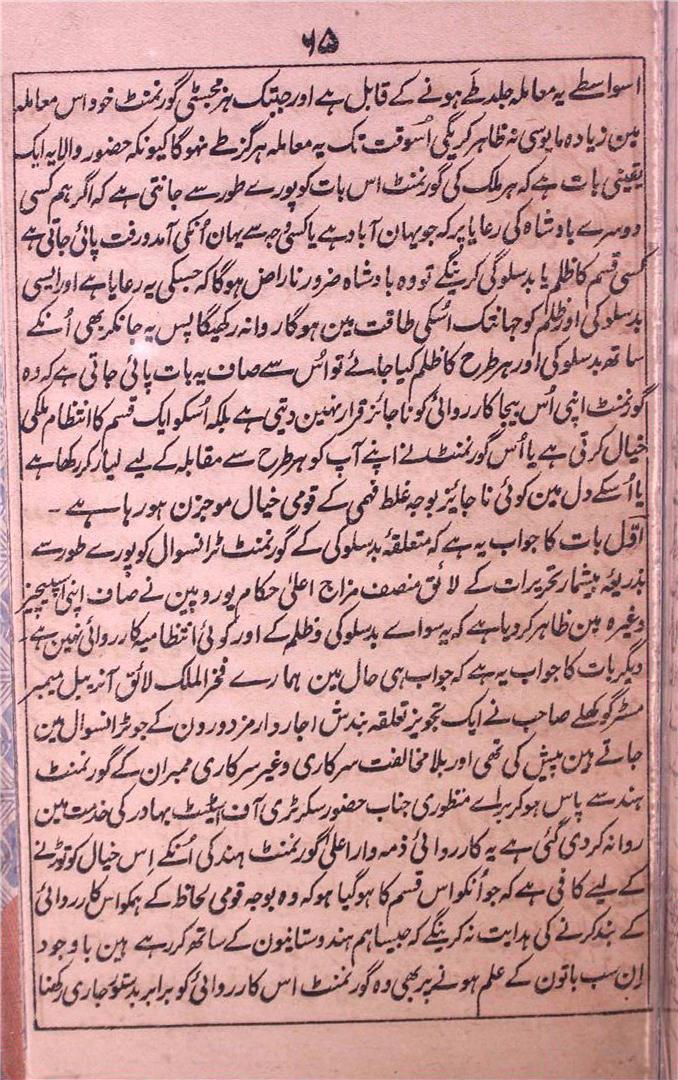 ۶۵
اسواسطے یہ معاملہ جلد طے ہونے کے قابل ہے اور جبتک ہز مجسٹی گورنمنٹ خود اس معاملہ
مین زیادہ مایوسی نہ ظاہر کریگی اُسوقت تک یہ معاملہ ہرگز طے نہوگا کیونکہ حضور والا یہ ایک
یقینی بات ہے کہ ہر ملک کی گورنمنٹ اس بات کو پورے طور سے جانتی ہے کہ اگر ہم کسی
دوسرے بادشاہ کی رعایا پر کہ جو یہان آباد ہے یا کسی وجہ سے یہان اُنکی آمدورفت پائی جاتی ہے
کسی قسم کا ظلم یا بدسلوگی کرینگے تو وہ بادشاہ ضرور ناراض ہوگا کہ جسکی یہ رعایا ہے اور ایسی
بدسلوکی اور ظلم کو جہانتک اُسکی طاقت مین ہوگا روا نہ رکھیگا پس یہ جانکر بھی اُنکے
ساتھ بدسلوکی اور ہر طرح کا ظلم کیا جائے تو اُس سے صاف یہ بات پائی جاتی ہے کہ وہ
گورنمنٹ اپنی اُس بیجا کارروائی کو ناجائز قرار نہین دیتی ہے بلکہ اُسکو ایک قسم کا انتظام ملکی
خیال کرتی ہے یا اُس گورنمنٹ نے اپنے آپ کو ہر طرح سے مقابلہ کے لیے تیار کر رکھا ہے
یا اُسکے دل مین کوئی ناجائیز بوجہ غلط فہمی کے قومی خیال موجزن ہو رہا ہے ۔
اوّل بات کا جواب یہ ہے کہ متعلقۂ بدسلوکی کے گورنمنٹ ٹرانسوال کو پورے طور سے
بذریعۂ بیشمار تحریرات کے لائق منصف مزاج اعلیٰ حکام یوروپین نے صاف اپنی اسپیچیز
وغیرہ مین ظاہر کر دیا ہے کہ یہ سواے بدسلوکی و ظلم کے اور کوئی انتظامیہ کارروائی نہین ہے
دیگر بات کا جواب یہ ہے کہ جواب ہی حال مین ہمارے فخر الملک لائق آنریبل میمبر
مسٹر گوکھلے صاحب نے ایک تجویز تعلقہ بندش اجاردار مزدورون کے جو ٹرانسوال مین
جاتے ہین پیش کی تھی اور بلا مخالفت سرکاری و غیر سرکاری ممبران کے گورنمنٹ
ہند سے پاس ہوکر براے منظوری جناب حضور سکرٹری آف اسٹیٹ بہادر کی خدمت مین
روانہ کر دی گئی ہے یہ کارروائی ذمہ دار اعلیٰ گورنمنٹ ہند کی اُنکے اِس خیال کو توڑنے
کے لیے کافی ہے کہ جو اُنکو اس قسم کا ہوگیا ہو کہ وہ بوجہ قومی لحاظ کے ہمکو اس کارروائی
کے بند کرنے کی ہدایت نہ کرینگے کہ جیسا ہم ہندوستانیون کے ساتھ کر رہے ہین باوجود
اِن سب باتون کے علم ہونے پر بھی وہ گورنمنٹ اس کارروائی کو برابر بدستور جاری رکھنا